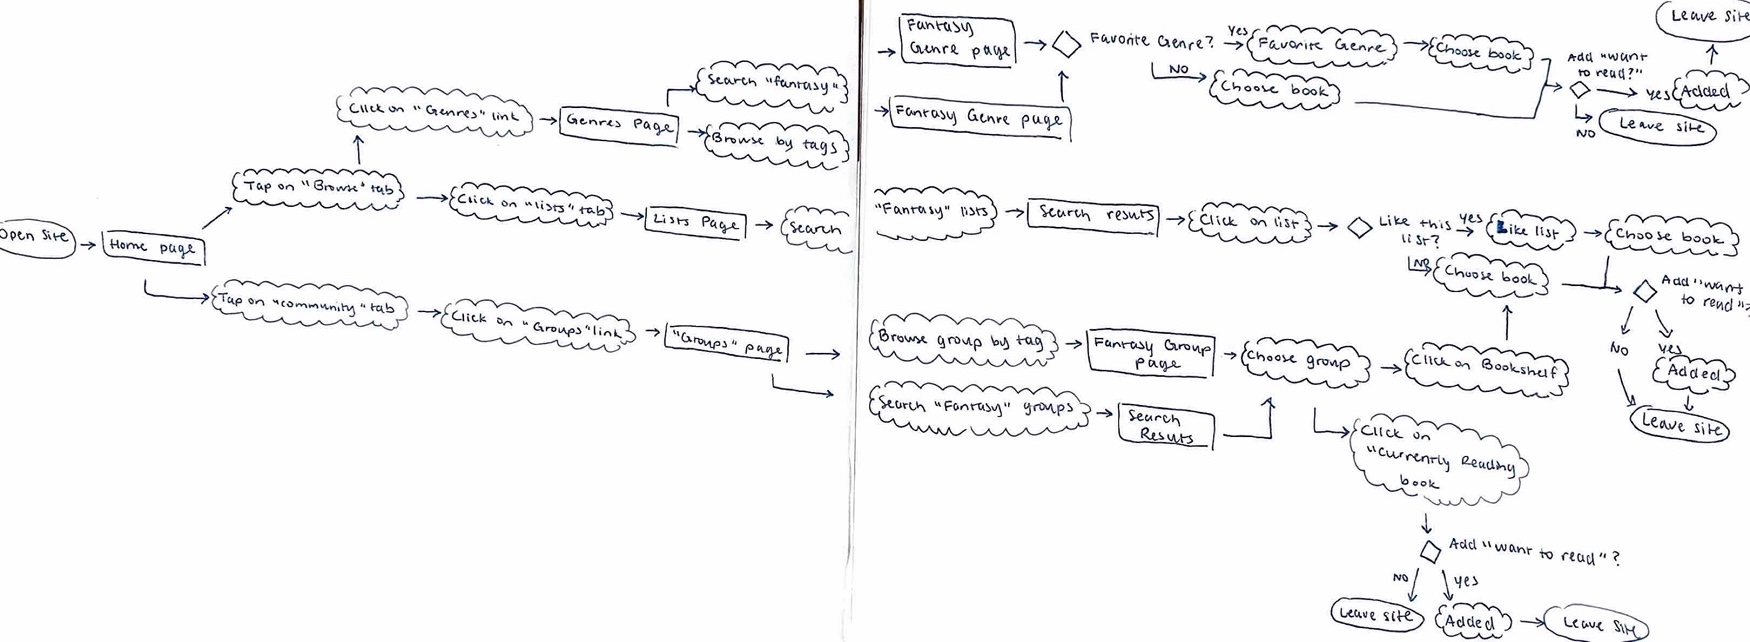 Open Site
Home page
Tap on "Browse" tab
Click on "Genres" link
Genres Page
Search "fantasy"
Browse by tags
Click on "lists" tab
Lists Page
Search
Tap on "community" tab
Click on "Groups" link
"Groups" page
Fantasy
Genre page
Favorite Genre?
Yes
Favorite Genre
Choose book
NO
Choose book
Fantasy Genre page
Add "want
to read?"
yes
Added
Leave Site
NO
Leave site
"Fantasy" lists
Search resuts
Click on list
Like this
list?
yes
Like list
Choose book
NO
Choose book
Add "want
to read"?
NO
yes
Added
Leave site
Browse group by tag
Fantasy Group
page
Choose group
Click on Bookshelf
Search "Fantasy" groups
Search
Resuts
Click on
"Currently Reading
book
Add "want to read"?
NO
yes
Leave site
Added
Leave Site